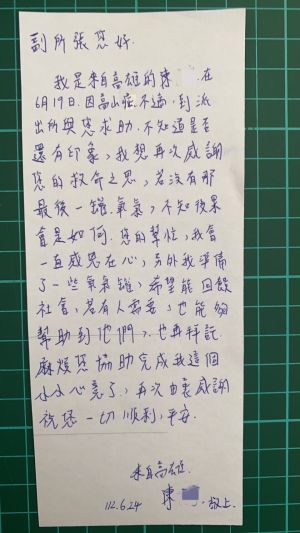 副所張您好.
我是來自高雄的陳 在
6月19日.因高山症不適,到派
出所與您求助.不知道是否
還有印象,我想再次感謝
您的救命之恩,若沒有那
最後一罐氧氣,不知後果
會是如何.您的幫忙,我會
一直感恩在心,另外我準備
了一些氧氣罐,希望能回饋
社會,若有人需要,也能夠
幫助到他們,也再拜託
麻煩您協助完成我這個
小小心意了,再次由衷感謝
祝您一切順利,平安.
來自高雄.
陳 敬上.
112.6.24